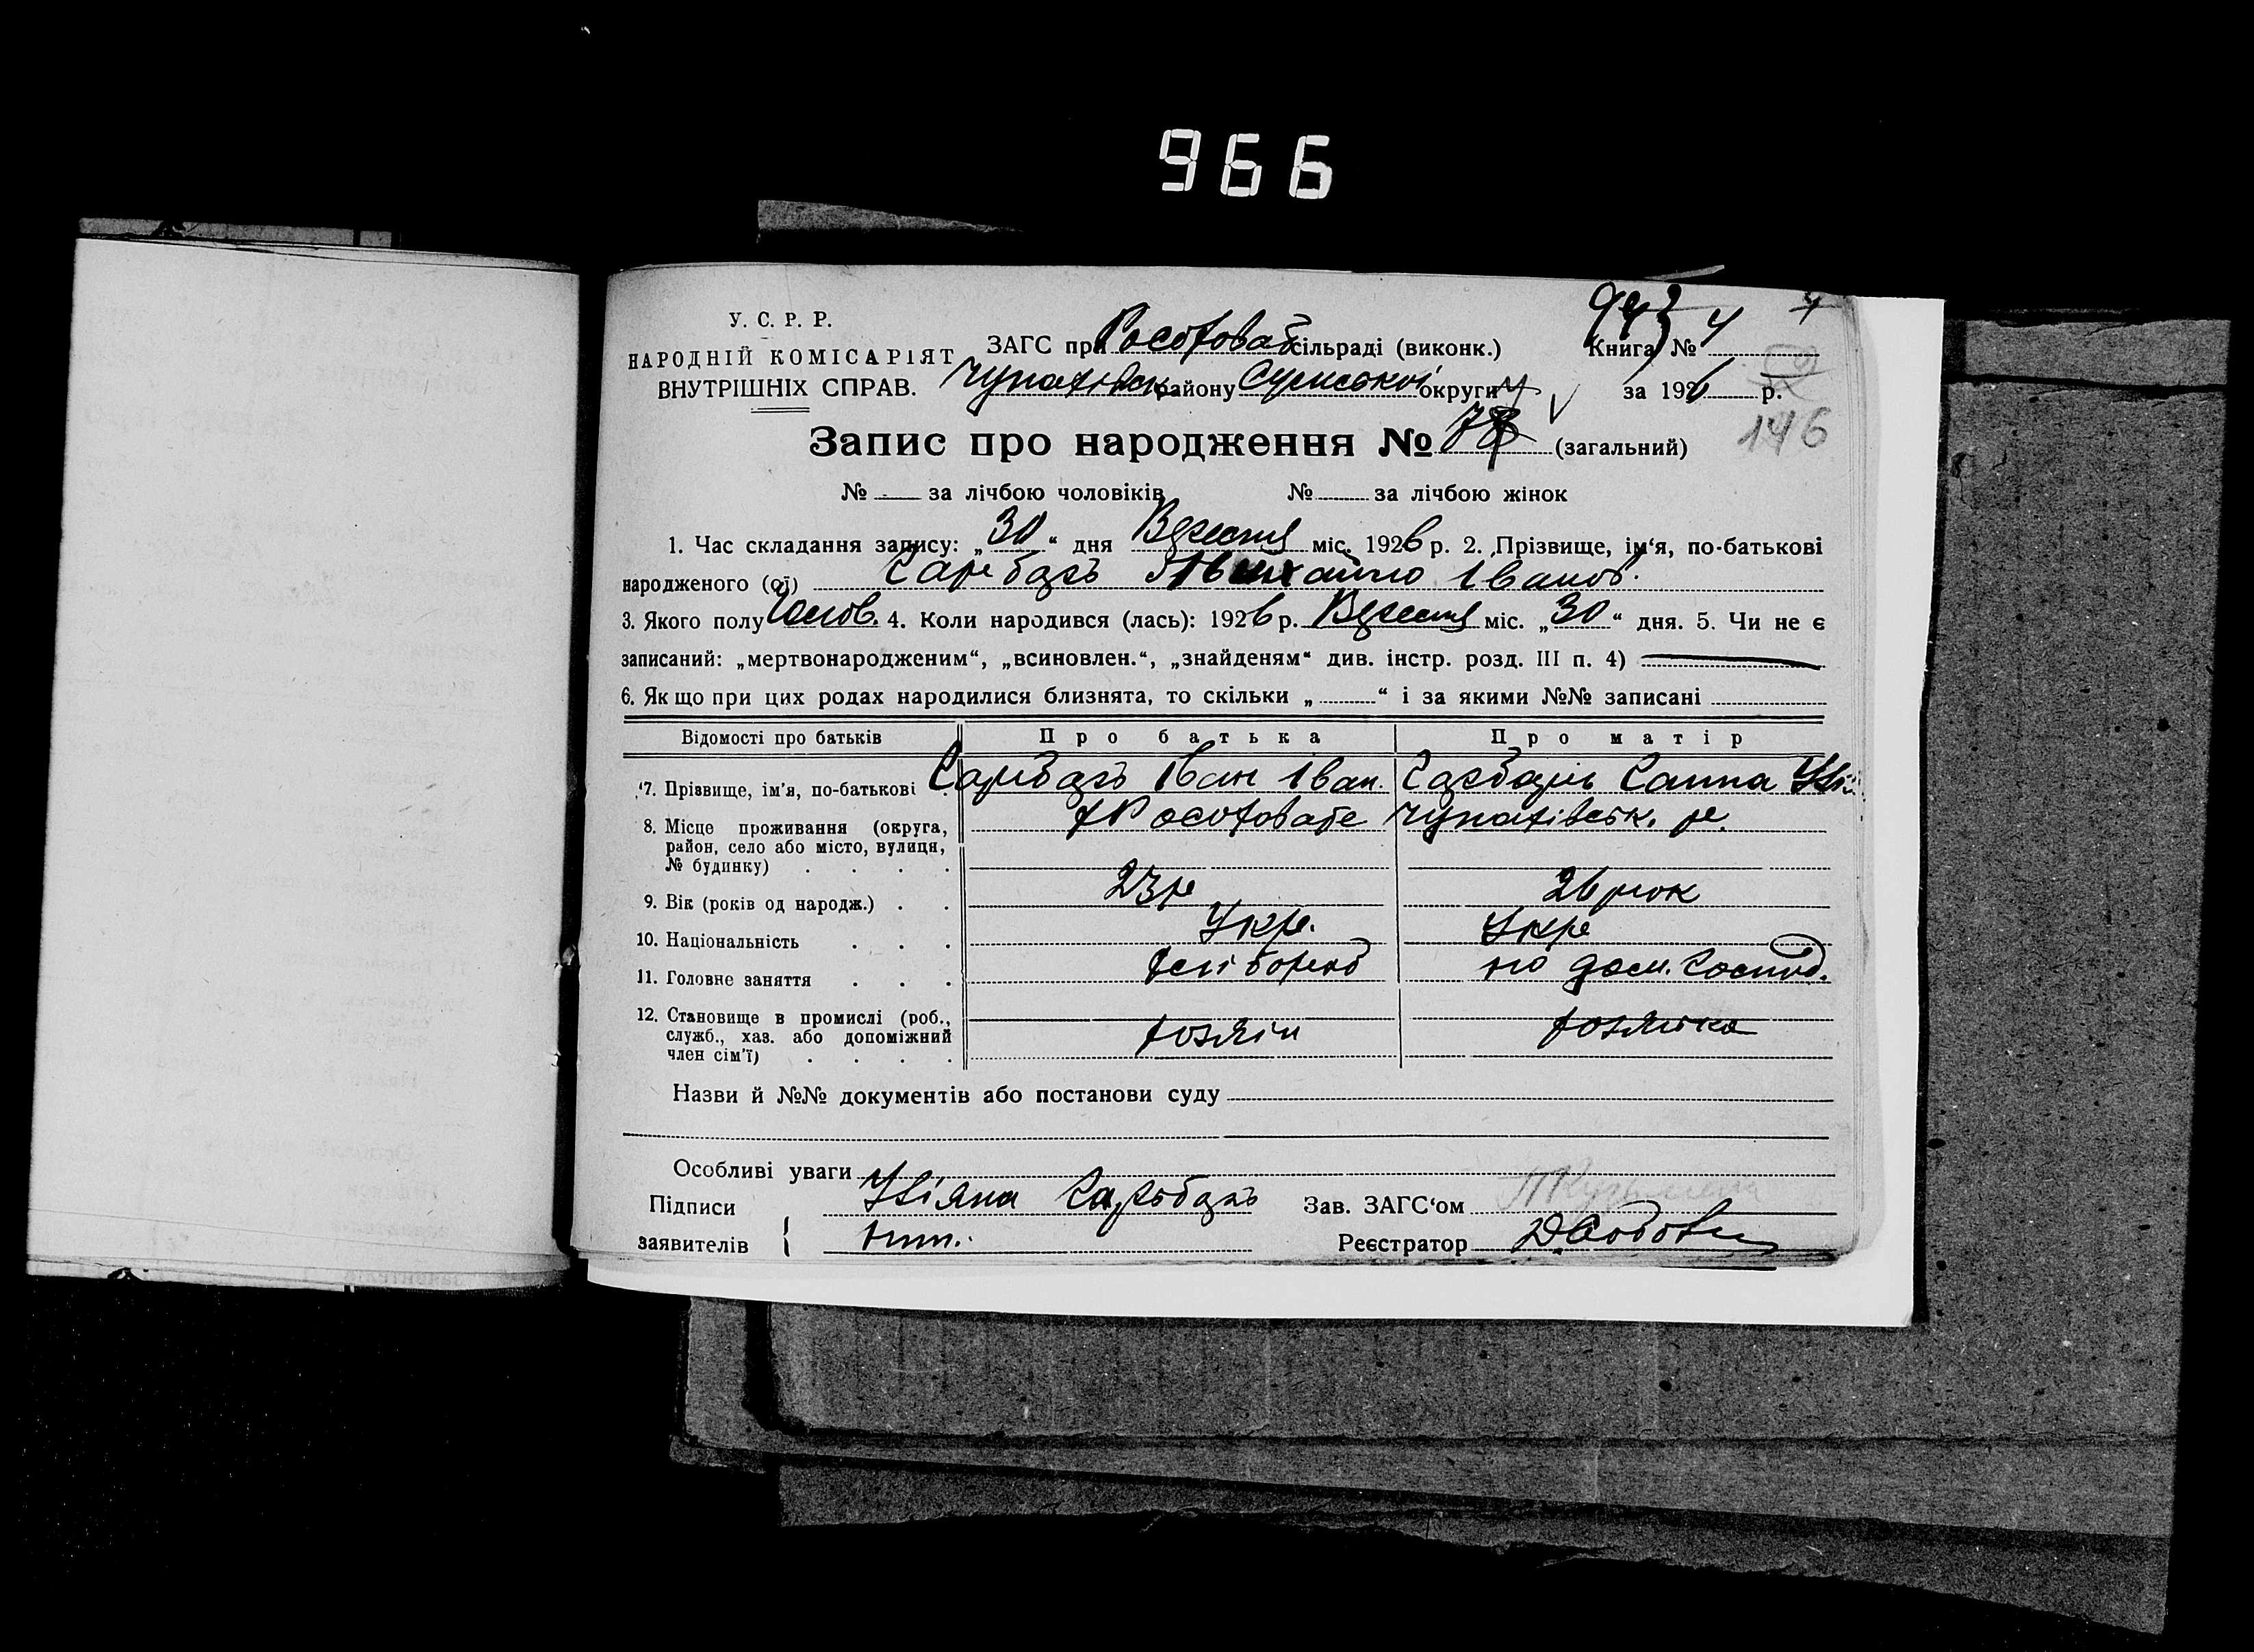 966
У. С. Р. Р.
НАРОДНІЙ КОМІСАРІЯТ
ВНУТРІШНІХ СПРАВ.
ЗАГС при сільраді (виконк.)
району Сумської округи
Книга № 4
за 1926 р.
146
Запис про народження № (загальний)
№ за лічбою чоловіків № за лічбою жінок
1. Час складання запису: „30“ дня Вересня міс. 1926 р. 2. Прізвище, ім‘я, по-батькові
народженого (ої) Іванов.
3. Якого полу Чолов. 4. Коли народився (лась): 1926 р. Вересня міс. „30“ дня. 5. Чи не є
записаний: „мертвонародженим“, „всиновлен.“, „знайденям“ див. інстр. розд. III п. 4)
6. Якщо при цих родах народилися близнята, то скільки „ “ і за якими №№ записані
Відомості про батьків Про батька Про матір
7. Прізвище, ім'я, по-батькові . Іван Іван. Ганна
8. Місце проживання (округа,
район, село або місто, вулиця,
№ будинку) . . . .
9. Вік (років од народж.) . . 23 р 26 рок
10. Національність . . . Укр. Укр
11. Головне заняття . . . хлібороб по дом. господ.
12. Становище в промислі (роб.,
служб., хаз. або допоміжний
член сім'ї) . . . . хозяїн хозяйка
Назви й №№ документів або постанови суду
Особливі уваги
Підписи Уліяна
заявителів
Зав. ЗАГС‘ом
Реєстратор